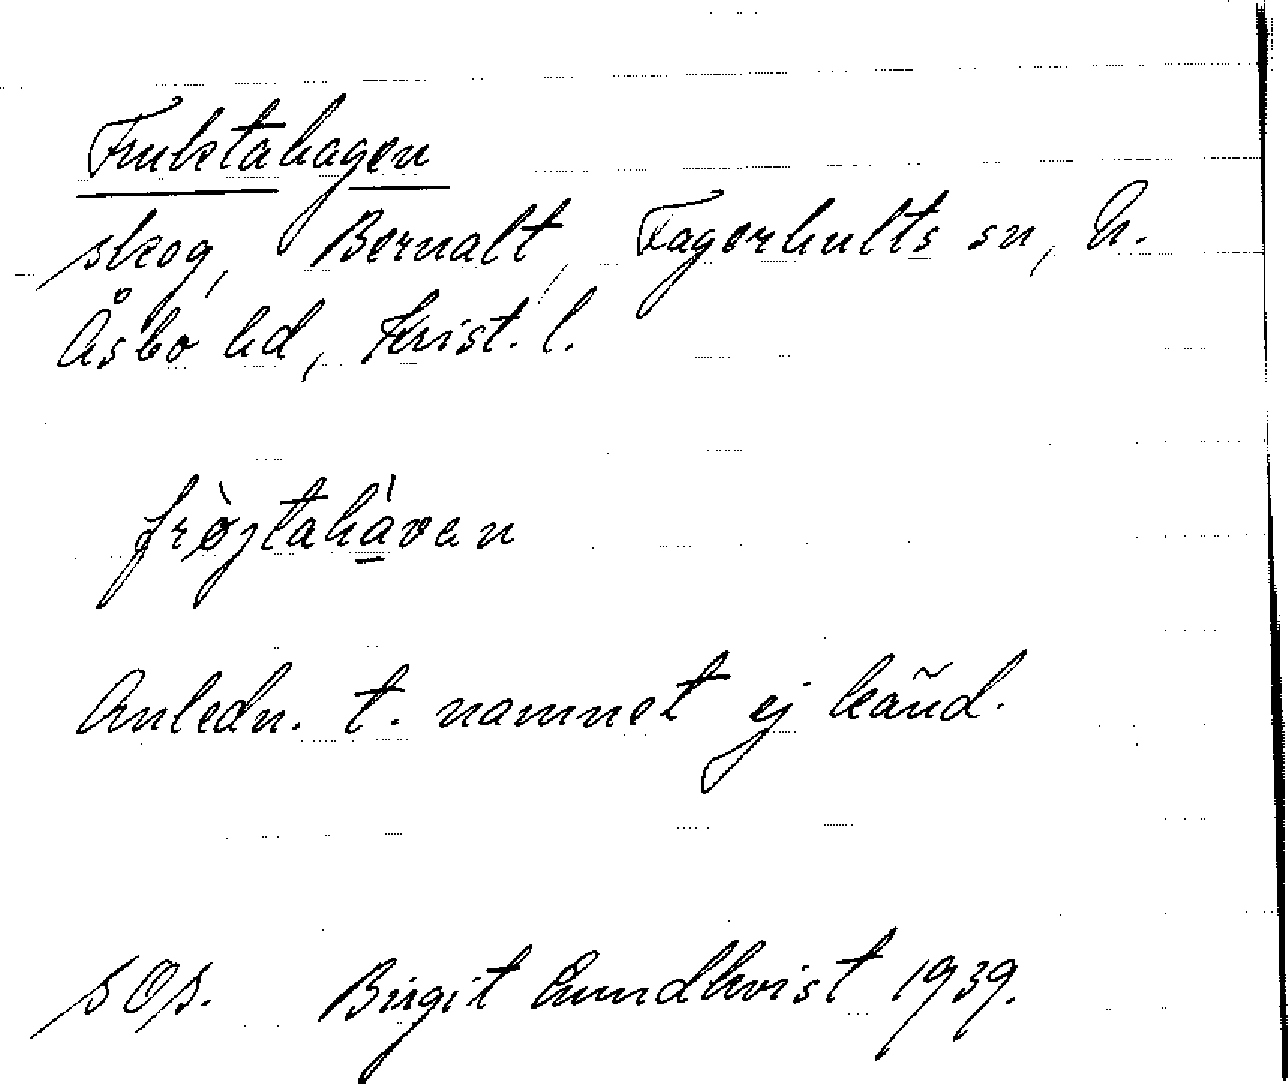 Fruktahagen
skog, Bernalt, Fagerhults sn, N.
Åsbo hd, Krist. l.
Anledn. t. namnet ej känd.
s Os. Birgit Lundkvist 1939.